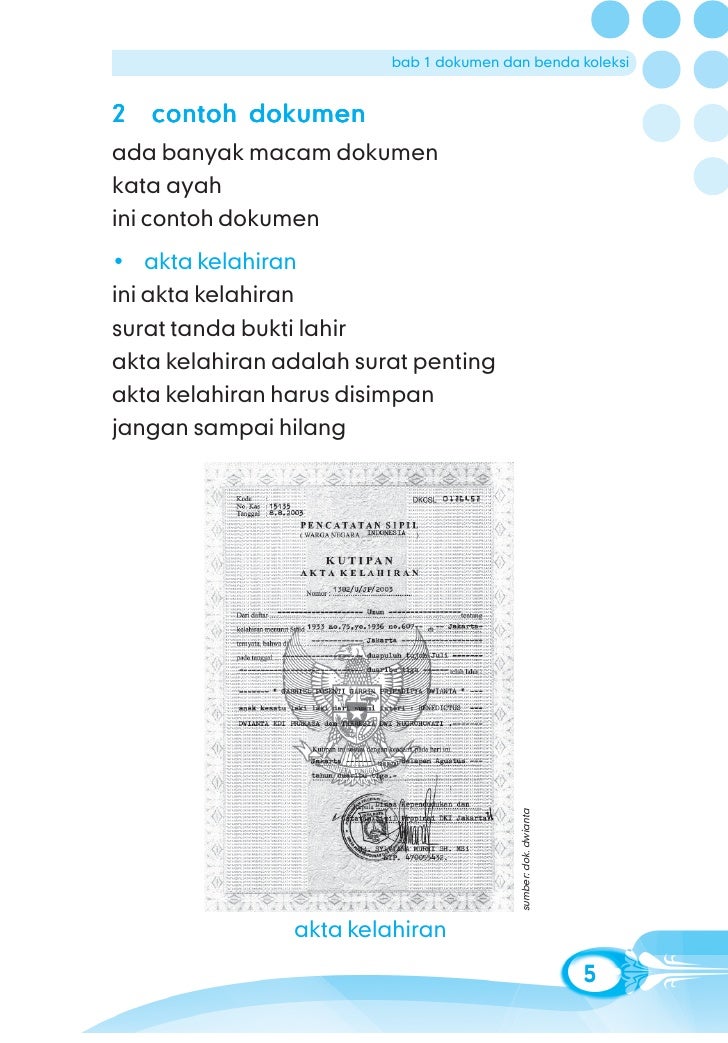 bab 1 dokumen dan benda koleksi
2 contoh dokumen
ada banyak macam dokumen
kata ayah
ini contoh dokumen
• akta kelahiran
ini akta kelahiran
surat tanda bukti lahir
akta kelahiran adalah surat penting
akta kelahiran harus disimpan
jangan sampai hilang
Kode :
DKCSL
No. Kas : 15135
Tanggal : 8.8.2003
PENCATATAN SIPIL
( WARGA NEGARA : INDONESIA )
KUTIPAN
AKTA KELAHIRAN
Nomor : 1382/U/JP/2003
Dari daftar Umum tentang
kelahiran menurut Stbld 1933 no.75,yo.1936 no.607 di Jakarta
ternyata, bahwa di Jakarta
pada tanggal duapuluh tujuh Juli
duaribu tiga telah lahir:
DWIANTA *
anak kesatu laki laki dari suami isteri : BENEDICTUS
DWIANTA EDI PRAKASA dan THERESIA DWI NUGROHOWATI
Kutipan ini sesuai dengan keadaan pada hari ini.
Jakarta tanggal delapan Agustus
tahun duaribu tiga.-
Dinas Kependudukan dan
Catatan Sipil Propinsi DKI Jakarta
SYLVIANA MURNI SH. MSi
NIP. 470055432.
sumber: dok. dwianta
akta kelahiran
5